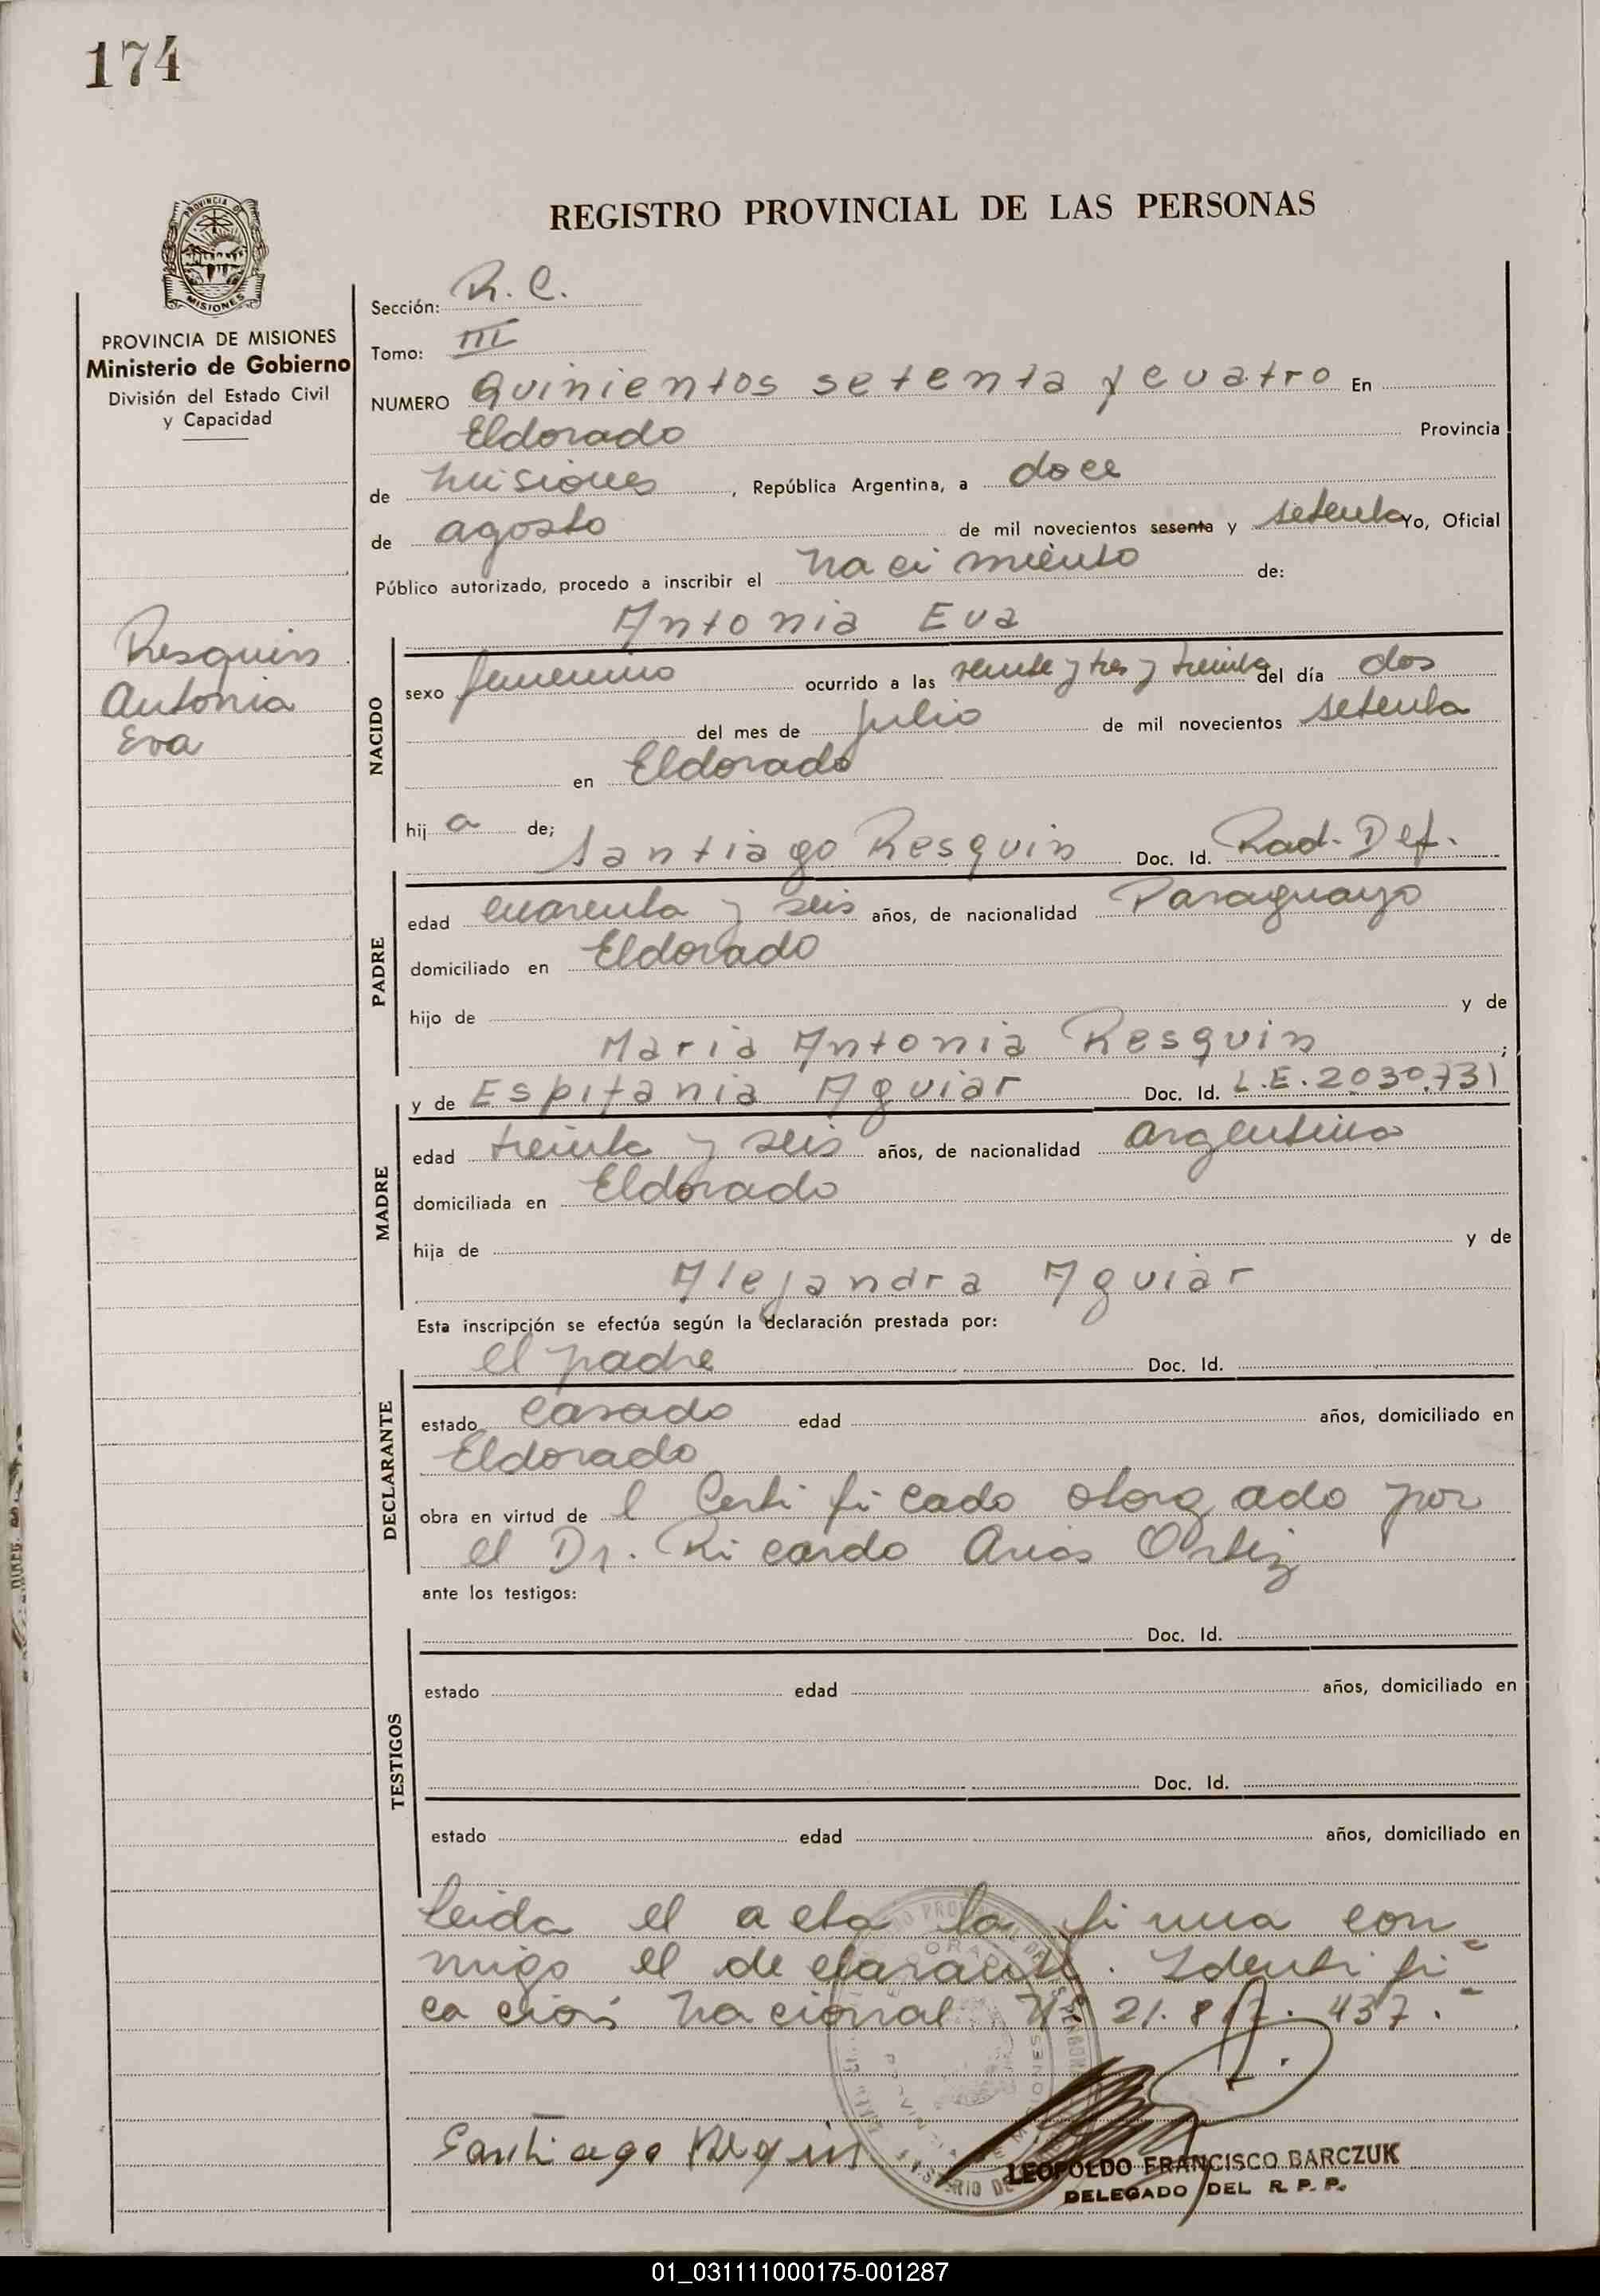 174
REGISTRO PROVINCIAL DE LAS PERSONAS
PROVINCIA DE MISIONES
PROVINCIA DE MISIONES
Ministerio de Gobierno
División del Estado Civil
y Capacidad
Resquin
Antonia
Eva
Sección: R. C.
Tomo: III
NUMERO Quinientos setenta y cuatro En
Eldorado Provincia
de Misiones, República Argentina, a doce
de agosto de mil novecientos sesenta y setenta Yo, Oficial
Público autorizado, procedo a inscribir el nacimiento de:
Antonia Eva
NACIDO
sexo femenino ocurrido a las veinte y tres y treinta del día dos
del mes de julio de mil novecientos setenta
en Eldorado
hij a de; Santiago Resquin Doc. Id. Rad. Def.
PADRE
edad cuarenta y seis años, de nacionalidad Paraguayo
domiciliado en Eldorado
hijo de y de
Maria Antonia Resquin ;
y de Espitania Aguiar Doc. Id. L.E. 2030.731
MADRE
edad treinta y seis años, de nacionalidad argentina
domiciliada en Eldorado
hija de y de
Alejandra Aguiar
Esta inscripción se efectúa según la declaración prestada por:
el padre Doc. Id.
DECLARANTE
estado casado edad años, domiciliado en
Eldorado
obra en virtud de l Certificado otorgado por
el Dr. Ricardo Arias Ortiz
ante los testigos:
Doc. Id.
TESTIGOS
estado edad años, domiciliado en
Doc. Id.
estado edad años, domiciliado en
Leida el acta la firma con
migo el declarante. Identifi
cación Nacional Nº 21.817.437.
Santiago Resquin
LEOPOLDO FRANCISCO BARCZUK
DELEGADO DEL R. P. P.
01_031111000175-001287